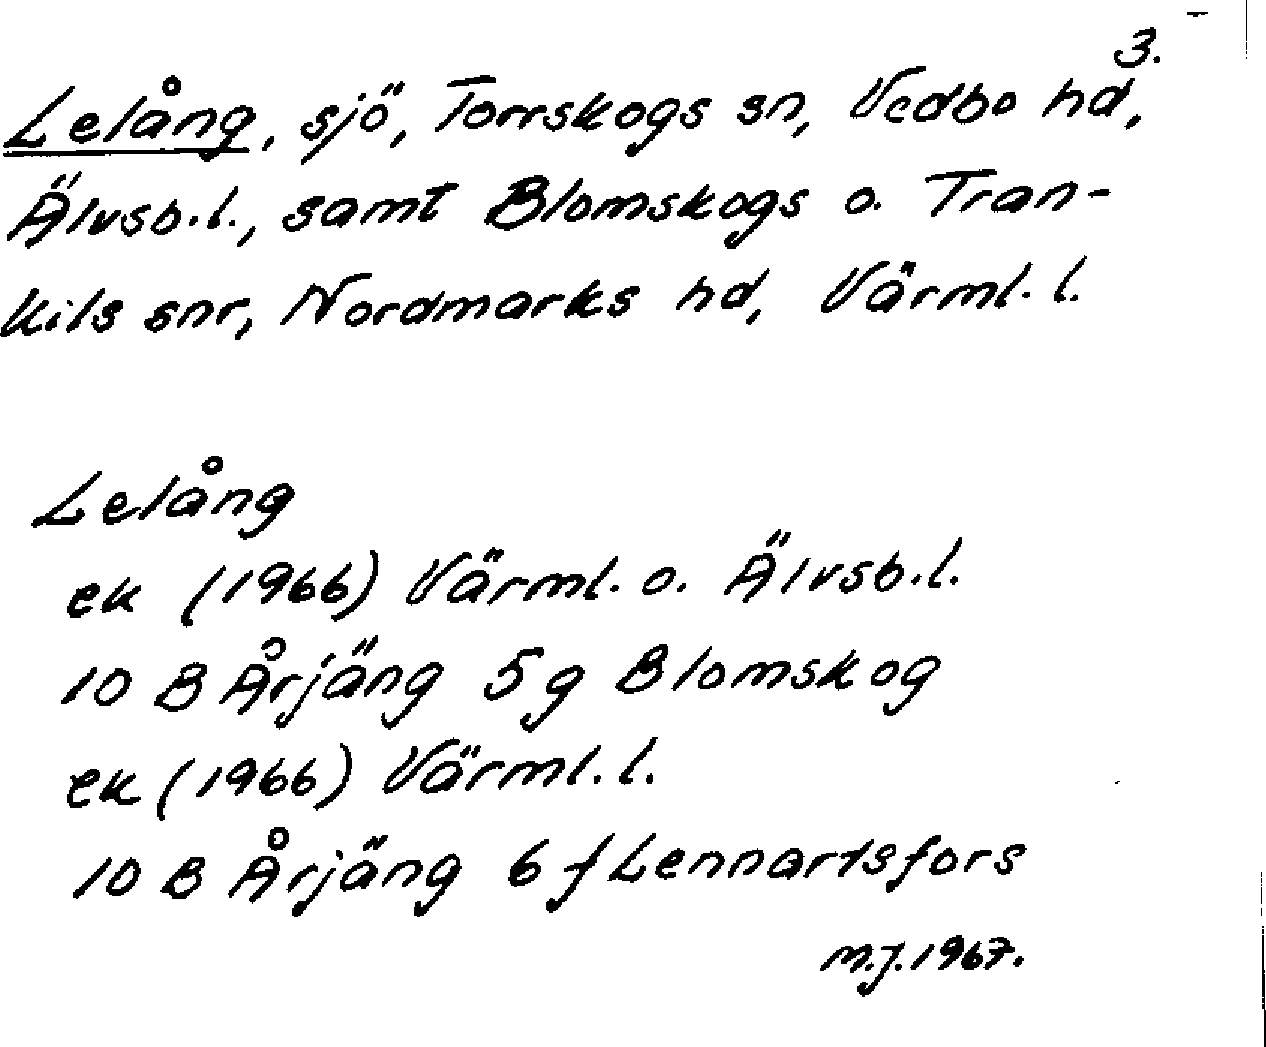 3.
Lelång, sjö, Torrskogs sn, Vedbo hd,
Älvsb.l., samt Blomskogs o. Tran-
kils snr, Nordmarks hd, Värml. l.
Lelång
ek (1966) Värml. o. Älvsb.l.
10 B Årjäng 5 g Blomskog
ek (1966) Värml. l.
10 B Årjäng 6 f Lennartsfors
M.J. 1967.